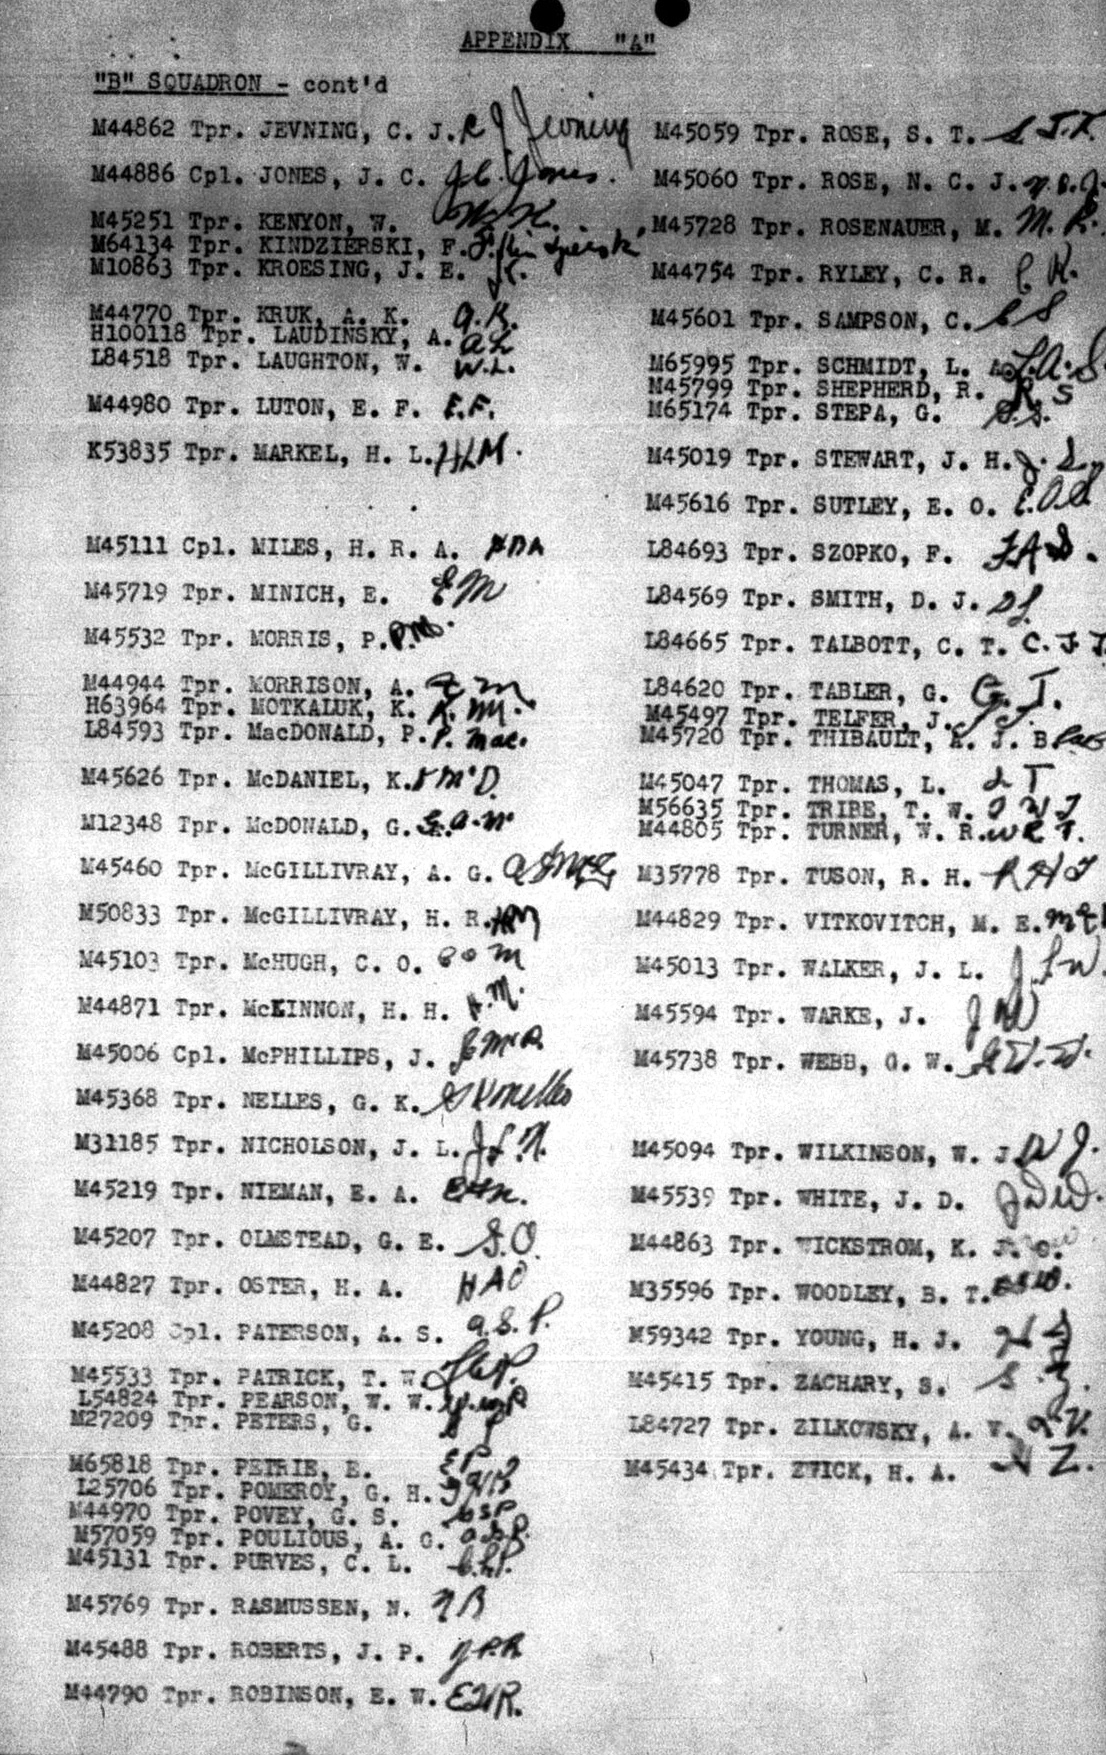 APPENDIX "A"
"B" SQUADRON - cont'd
M44862 Tpr. JEVNING, C. J. C J Jevning
M44886 Cpl. JONES, J. C. J.C. Jones.
M45251 Tpr. KENYON, W. W.K.
M64134 Tpr. KINDZIERSKI, F. F. Kindzierski
M10863 Tpr. KROESING, J. E.
M44770 Tpr. KRUK, A. K. a.K.
H100118 Tpr. LAUDINSKY, A. a L
L84518 Tpr. LAUGHTON, W. W.L.
M44980 Tpr. LUTON, E. F. E.F.
K53835 Tpr. MARKEL, H. L. HLM.
M45111 Cpl. MILES, H. R. A.
M45719 Tpr. MINICH, E. EM
M45532 Tpr. MORRIS, P. P.M.
M44944 Tpr. MORRISON, A. a m
H63964 Tpr. MOTKALUK, K. K. M.
L84593 Tpr. MacDONALD, P. P. Mac.
M45626 Tpr. McDANIEL, K. K McD.
M12348 Tpr. McDONALD, G.
M45460 Tpr. McGILLIVRAY, A. G.
M50833 Tpr. McGILLIVRAY, H. R.
M45103 Tpr. McHUGH, C. O. C O M
M44871 Tpr. McKINNON, H. H. H.M.
M45006 Cpl. McPHILLIPS, J. J. McP.
M45368 Tpr. NELLES, G. K. G K Nelles
M31185 Tpr. NICHOLSON, J. L. J.L.N.
M45219 Tpr. NIEMAN, E. A. EAN.
M45207 Tpr. OLMSTEAD, G. E. G.O.
M44827 Tpr. OSTER, H. A. HAO
M45208 Cpl. PATERSON, A. S. a.S.P.
M45533 Tpr. PATRICK, T. W. TWP.
L54824 Tpr. PEARSON, W. W. W.WP
M27209 Tpr. PETERS, G. G P
M65818 Tpr. PETRIE, E. E P
L25706 Tpr. POMEROY, G. H. GHP
M44970 Tpr. POVEY, G. S. GSP
M57059 Tpr. POULIOUS, A. G. a.G.P.
M45131 Tpr. PURVES, C. L. C.L.P.
M45769 Tpr. RASMUSSEN, N. N R
M45488 Tpr. ROBERTS, J. P. J.P.R.
M44790 Tpr. ROBINSON, E. W. EWR.
M45059 Tpr. ROSE, S. T. S.T.R.
M45060 Tpr. ROSE, N. C. J. n.c.J.
M45728 Tpr. ROSENAUER, M. M. R.
M44754 Tpr. RYLEY, C. R. C R.
M45601 Tpr. SAMPSON, C. C S
M65995 Tpr. SCHMIDT, L. A. L.A.S
M45799 Tpr. SHEPHERD, R. R. S
M65174 Tpr. STEPA, G. G.S.
M45019 Tpr. STEWART, J. H. J. S.
M45616 Tpr. SUTLEY, E. O. E.O.S.
L84693 Tpr. SZOPKO, F. F.A S.
L84569 Tpr. SMITH, D. J. DS.
L84665 Tpr. TALBOTT, C. T. C. T. T
L84620 Tpr. TABLER, G. G. T.
M45497 Tpr. TELFER, J. J T.
M45720 Tpr. THIBAULT, R. J. B
M45047 Tpr. THOMAS, L. L T
M56635 Tpr. TRIBE, T. W. T W T
M44805 Tpr. TURNER, W. R. W R T.
M35778 Tpr. TUSON, R. H. R H T
M44829 Tpr. VITKOVITCH, M. E.
M45013 Tpr. WALKER, J. L. J L W.
M45594 Tpr. WARKE, J. J W
M45738 Tpr. WEBB, G. W. G W. W.
M45094 Tpr. WILKINSON, W. J. W J.
M45539 Tpr. WHITE, J. D. JDW.
M44863 Tpr. WICKSTROM, K. J. O.
M35596 Tpr. WOODLEY, B. T.
M59342 Tpr. YOUNG, H. J.
M45415 Tpr. ZACHARY, S. S. Z.
L84727 Tpr. ZILKOWSKY, A. W.
M45434 Tpr. ZWICK, H. A. H Z.